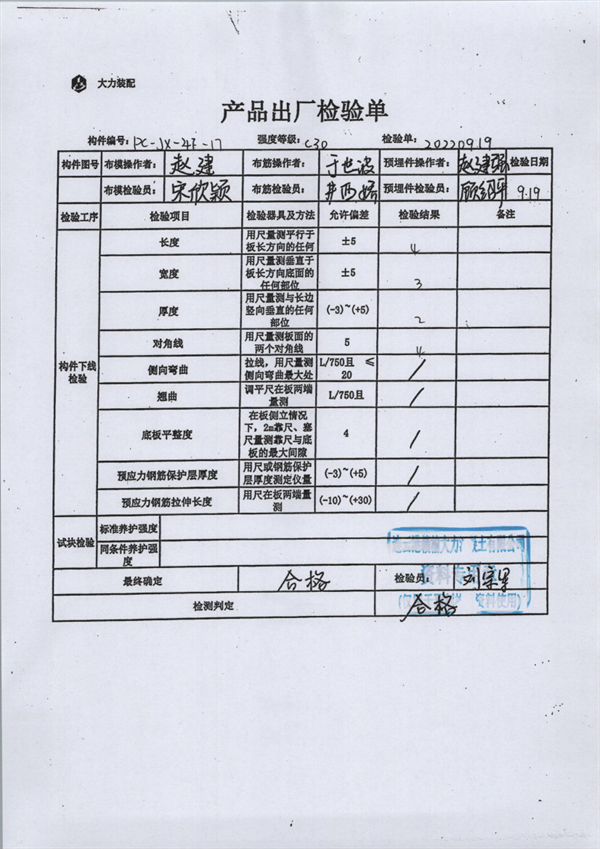 大力装配
产品出厂检验单
构件编号: PC-JX-4F-17 强度等级: C30 检验单: 20220919
构件图号 布模操作者: 赵建 布筋操作者: 于世波 预埋件操作者: 赵建强 检验日期
布模检验员: 宋欣颖 布筋检验员: 预埋件检验员: 9.19
检验工序 检验项目 检验器具及方法 允许偏差 检验结果 备注
构件下线检验
长度 用尺量测平行于板长方向的任何 ±5 4
宽度 用尺量测垂直于板长方向底面的任何部位 ±5 3
厚度 用尺量测与长边竖向垂直的任何部位 (-3)~(+5) 2
对角线 用尺量测板面的两个对角线 5 4
侧向弯曲 拉线，用尺量测侧向弯曲最大处 L/750且 ≤20 /
翘曲 调平尺在板两端量测 L/750且 /
底板平整度 在板侧立情况下，2m靠尺、塞尺量测靠尺与底板的最大间隙 4 /
预应力钢筋保护层厚度 用尺或钢筋保护层厚度测定仪量 (-3)~(+5) /
预应力钢筋拉伸长度 用尺在板两端量测 (-10)~(+30) /
试块检验 标准养护强度
同条件养护强度
最终确定 合格 检验员:
检测判定 合格